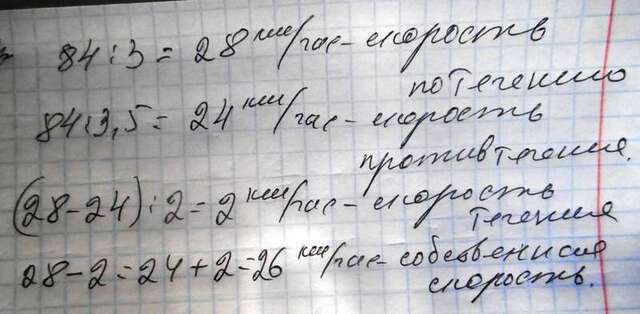 84:3 = 28 км/час - скорость
по течению
84:3,5 = 24 км/час - скорость
против течения.
(28-24):2 = 2 км/час - скорость
течения
28-2=24+2=26 км/час - собственная
скорость.